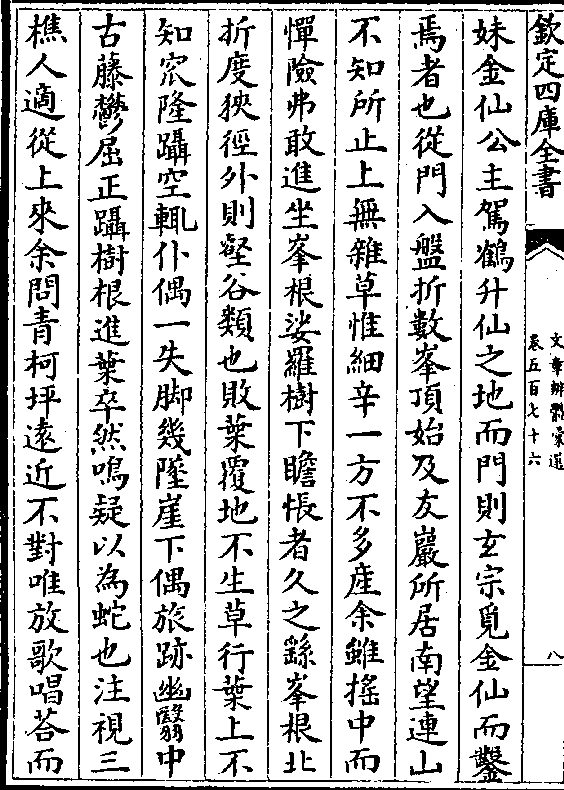 欽定四庫全書
文章辨體彙選
卷五百七十六
八
妹金仙公主駕鶴升仙之地而門則玄宗覓金仙而鑿
焉者也從門入盤折數峯頂始及友巖所居南望連山
不知所止上無雜草惟細辛一方不多產余雖搖中而
憚險弗敢進坐峯根娑羅樹下瞻悵者久之繇峯根北
折度狹徑外則壑谷類也敗葉覆地不生草行葉上不
知窊隆躡空輒仆偶一失脚幾墜崖下偶旅跡幽翳中
古藤鬱屈正躡樹根進葉卒然鳴疑以為蛇也注視三
樵人適從上來余問青柯坪遠近不對唯放歌唱荅而